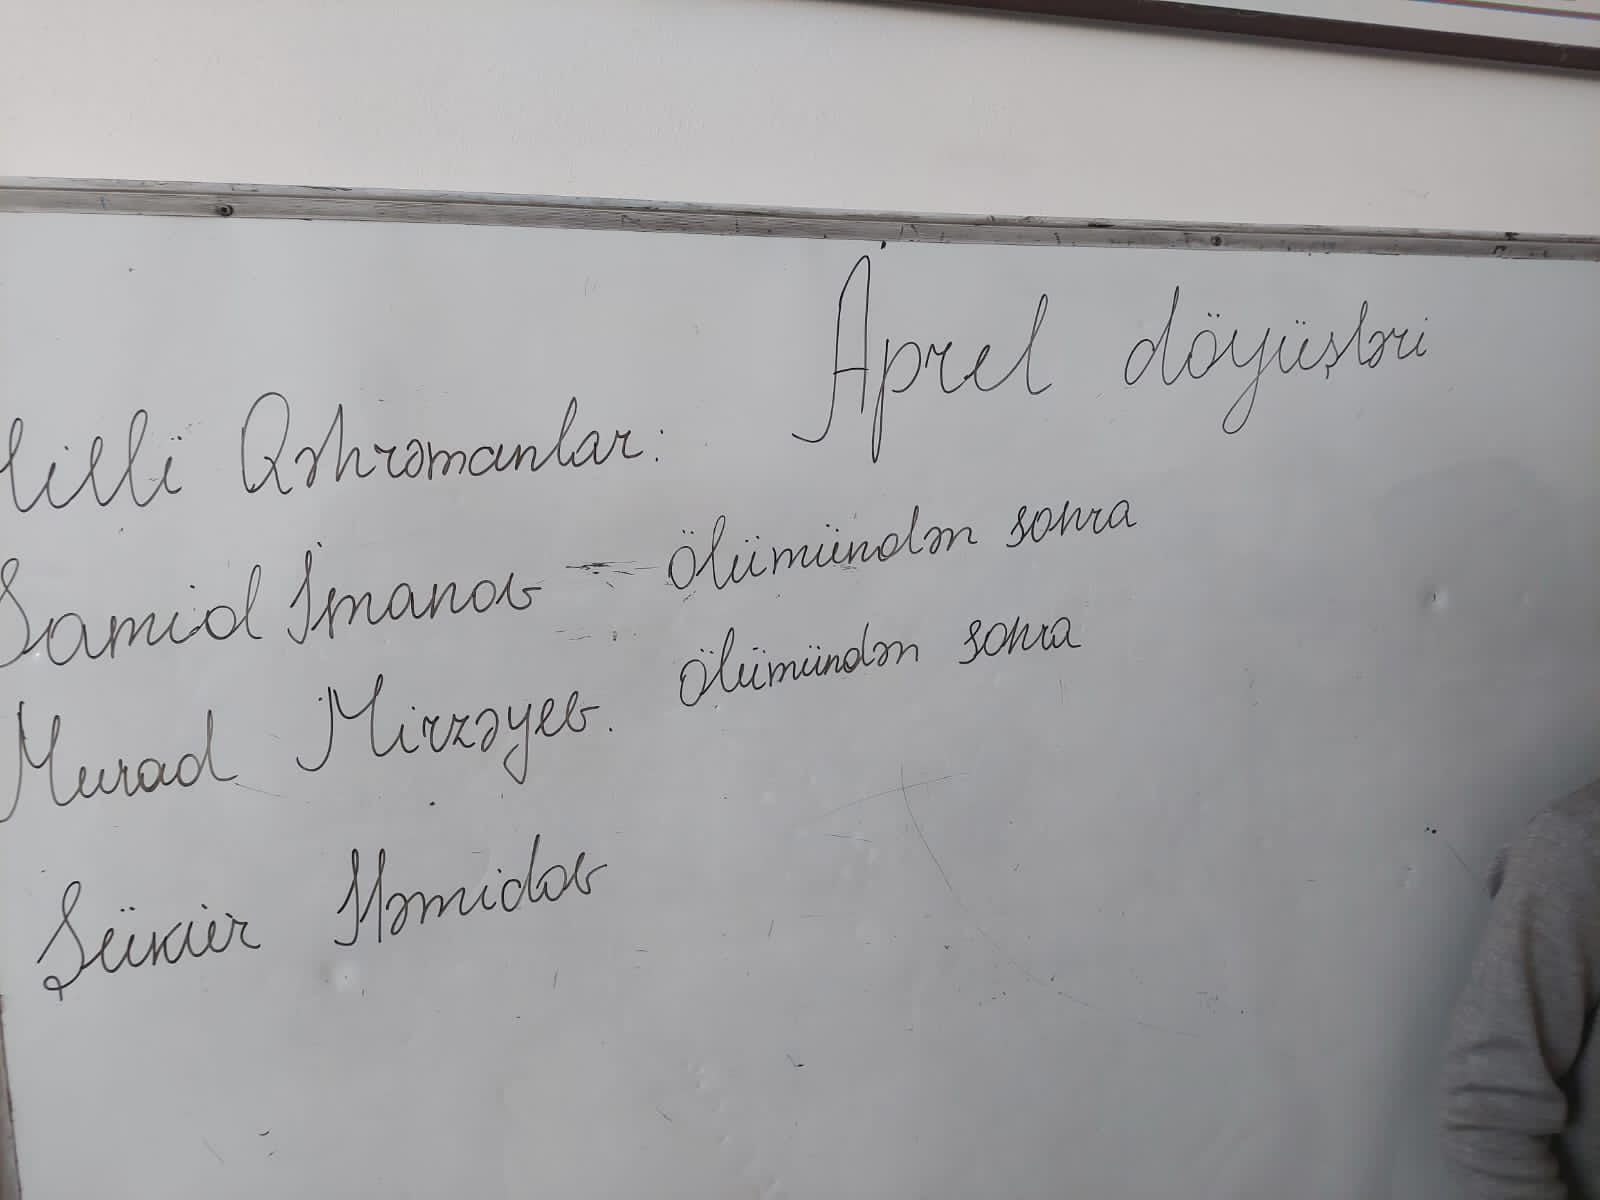 Aprel döyüşləri
Milli Qəhrəmanlar:
Samid İmanov - ölümündən sonra
Murad Mirzəyev. ölümündən sonra
Şükür Həmidov